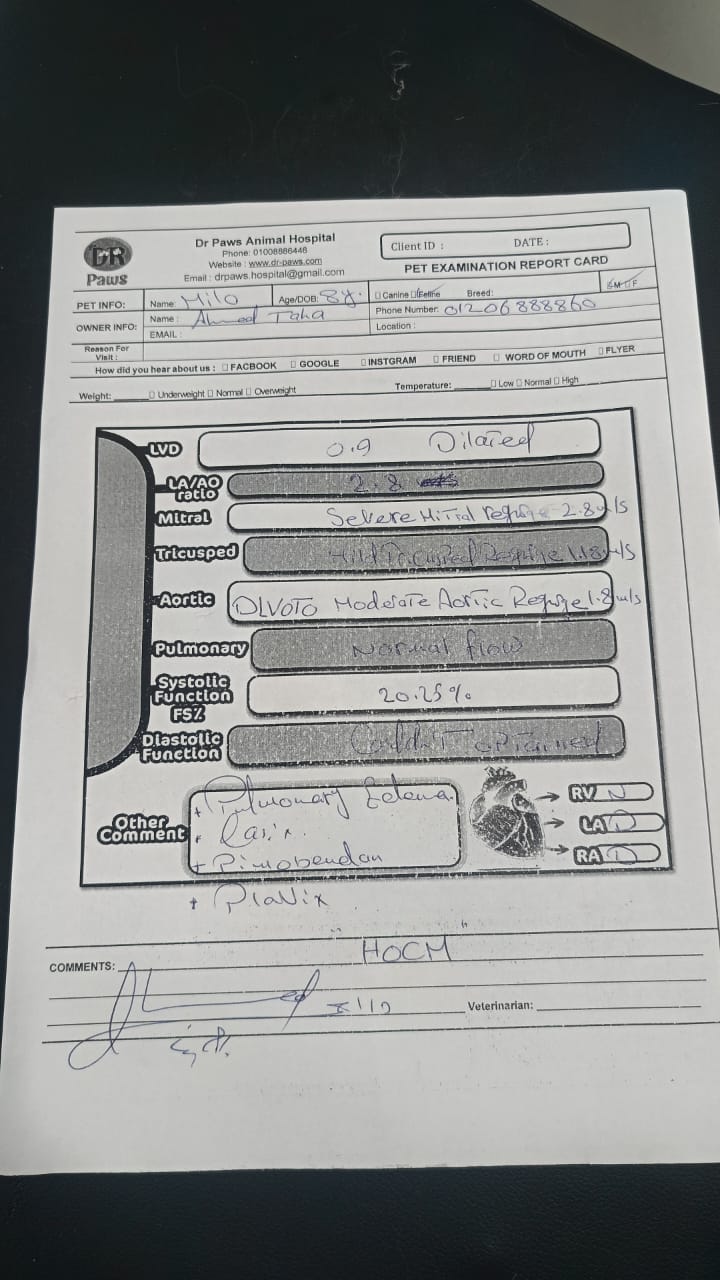 DR Paws
Dr Paws Animal Hospital
Phone: 01008886448
Website : www.dr-paws.com
Email : drpaws.hospital@gmail.com
Client ID : DATE :
PET EXAMINATION REPORT CARD
PET INFO: Name: Milo Age/DOB: 8y. Canine Feline Breed: M F
OWNER INFO: Name : Ahmed Taha Phone Number: 01206888860
EMAIL : Location :
Reason For Visit :
How did you hear about us : FACBOOK GOOGLE INSTGRAM FRIEND WORD OF MOUTH FLYER
Weight: Underweight Normal Overweight Temperature: Low Normal High
LVD 0.9 Dilated
LA/AO ratio 2.8
Mitral Severe Mitral 2.8 m/s
Tricusped Mild 1.18 m/s
Aortic Moderate Aortic 1.8 m/s
Pulmonary Normal flow
Systolic Function FS% 20.25%
Diastolic Function Couldn't
Other Comment + Pulmonary Edema.
+ Lasix.
+ Pimobendan
+ Plavix
RV N
LA D
RA D
COMMENTS: "HOCM"
Veterinarian: